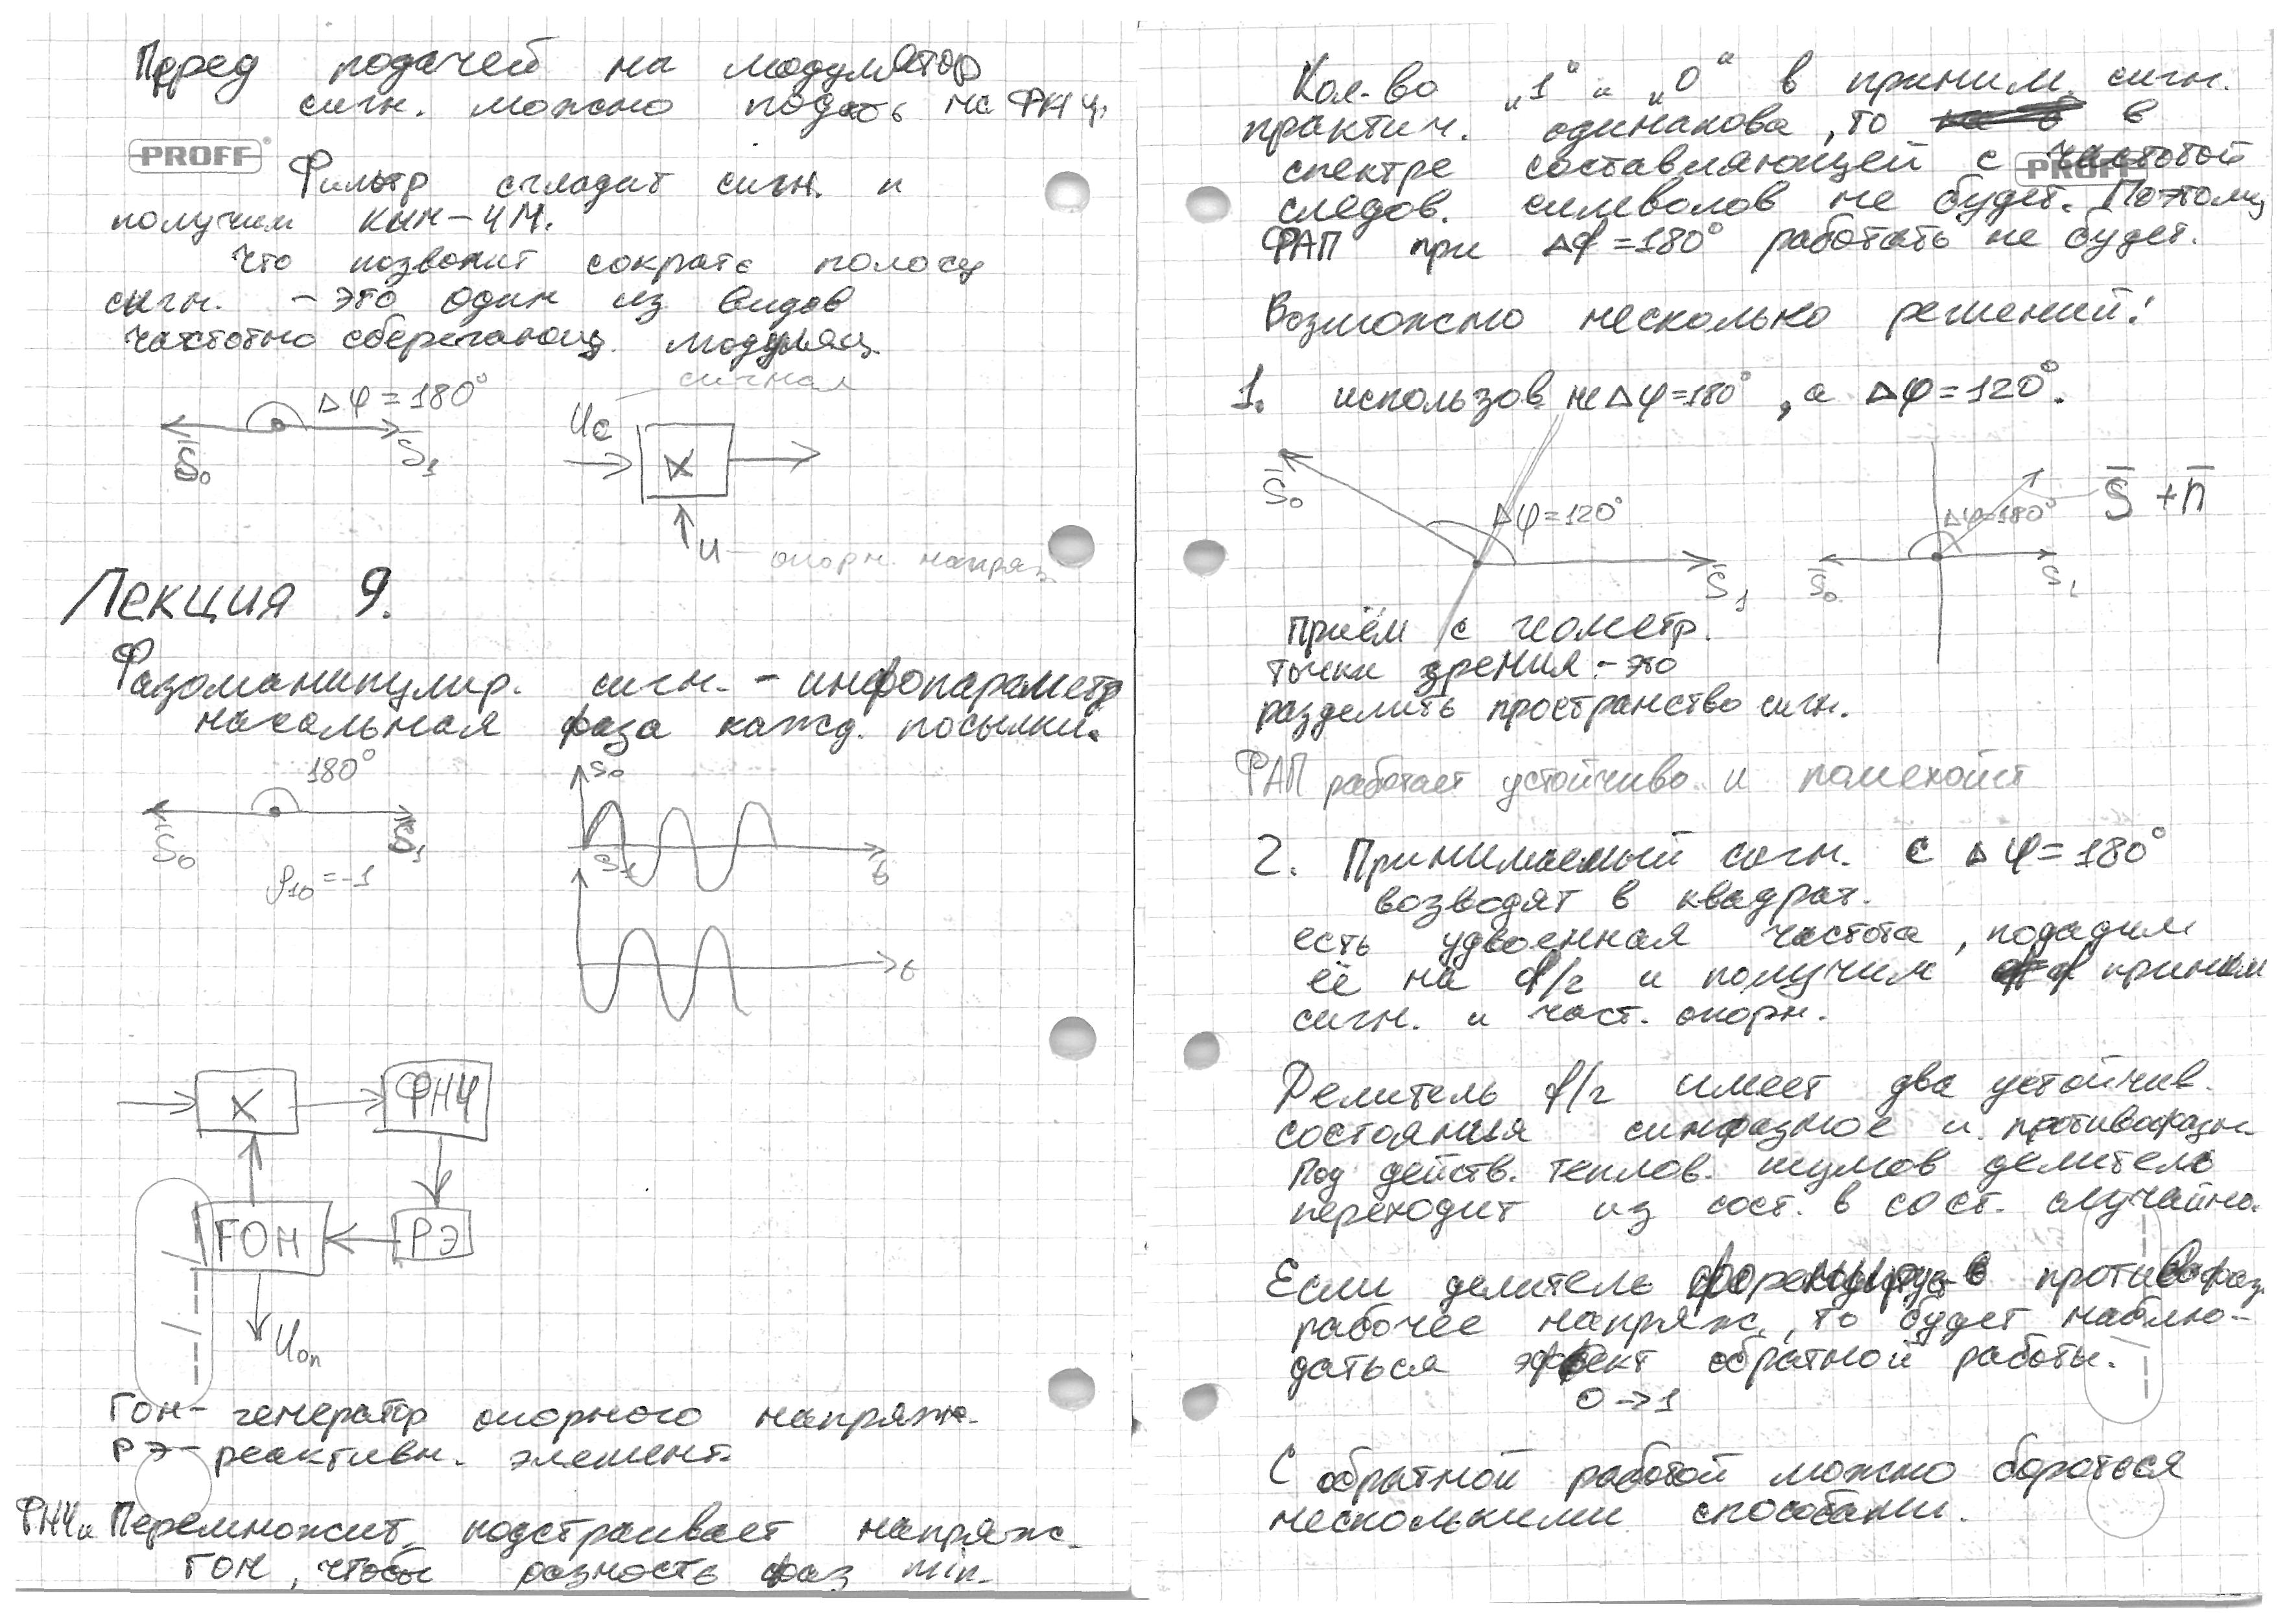 Перед подачей на модулятор
сигн. можно подать на ФНЧ.
PROFF
Фильтр сгладит сигн. и
получим КНМ-ЧМ.
Что позволит сократь полосу
сигн. - это один из видов
частотно сберегающ. модуляц.
Δφ = 180°
S̄₀
S̄₁
сигнал
Uc
X
U - опорн. напряж.
Лекция 9.
Фазоманипулир. сигн. - инфопараметр
начальная фаза кажд. посылки.
180°
S̄₀
S̄₁
ρ₁₀ = -1
S₀
t
S₁
t
X
ФНЧ
ГОН
РЭ
Uоп
ГОН - генератор опорного напряж.
РЭ - реактивн. элемент.
ФНЧ и Перемножит. подстраивает напряж.
ГОН, чтобы разность фаз min.
Кол-во „1“ и „0“ в приним. сигн.
практич. одинакова, то в
спектре составляющей с частотой
PROFF
следов. символов не будет. Поэтому
ФАП при Δφ = 180° работать не будет.
Возможно несколько решений:
1. использов. не Δφ = 180°, а Δφ = 120°.
S̄₀
Δφ = 120°
S̄₁
Δφ = 180°
S̄ + n̄
S̄₀
S₁
Приём с геометр.
точки зрения - это
разделить пространство сигн.
ФАП работает устойчиво и
2. Принимаемый сигн. с Δφ = 180°
возводят в квадрат.
есть удвоенная частота, подадим
её на f/2 и получим f приним
сигн. и част. опорн.
Делитель f/2 имеет два устойчив.
состояния синфазное и противофазн.
Под действ. теплов. шумов делитель
переходит из сост. в сост. случайно.
Если делитель противофаз.
рабочее напряж., то будет наблю-
даться эффект обратной работы.
0 → 1
С обратной работой можно бороться
несколькими способами.